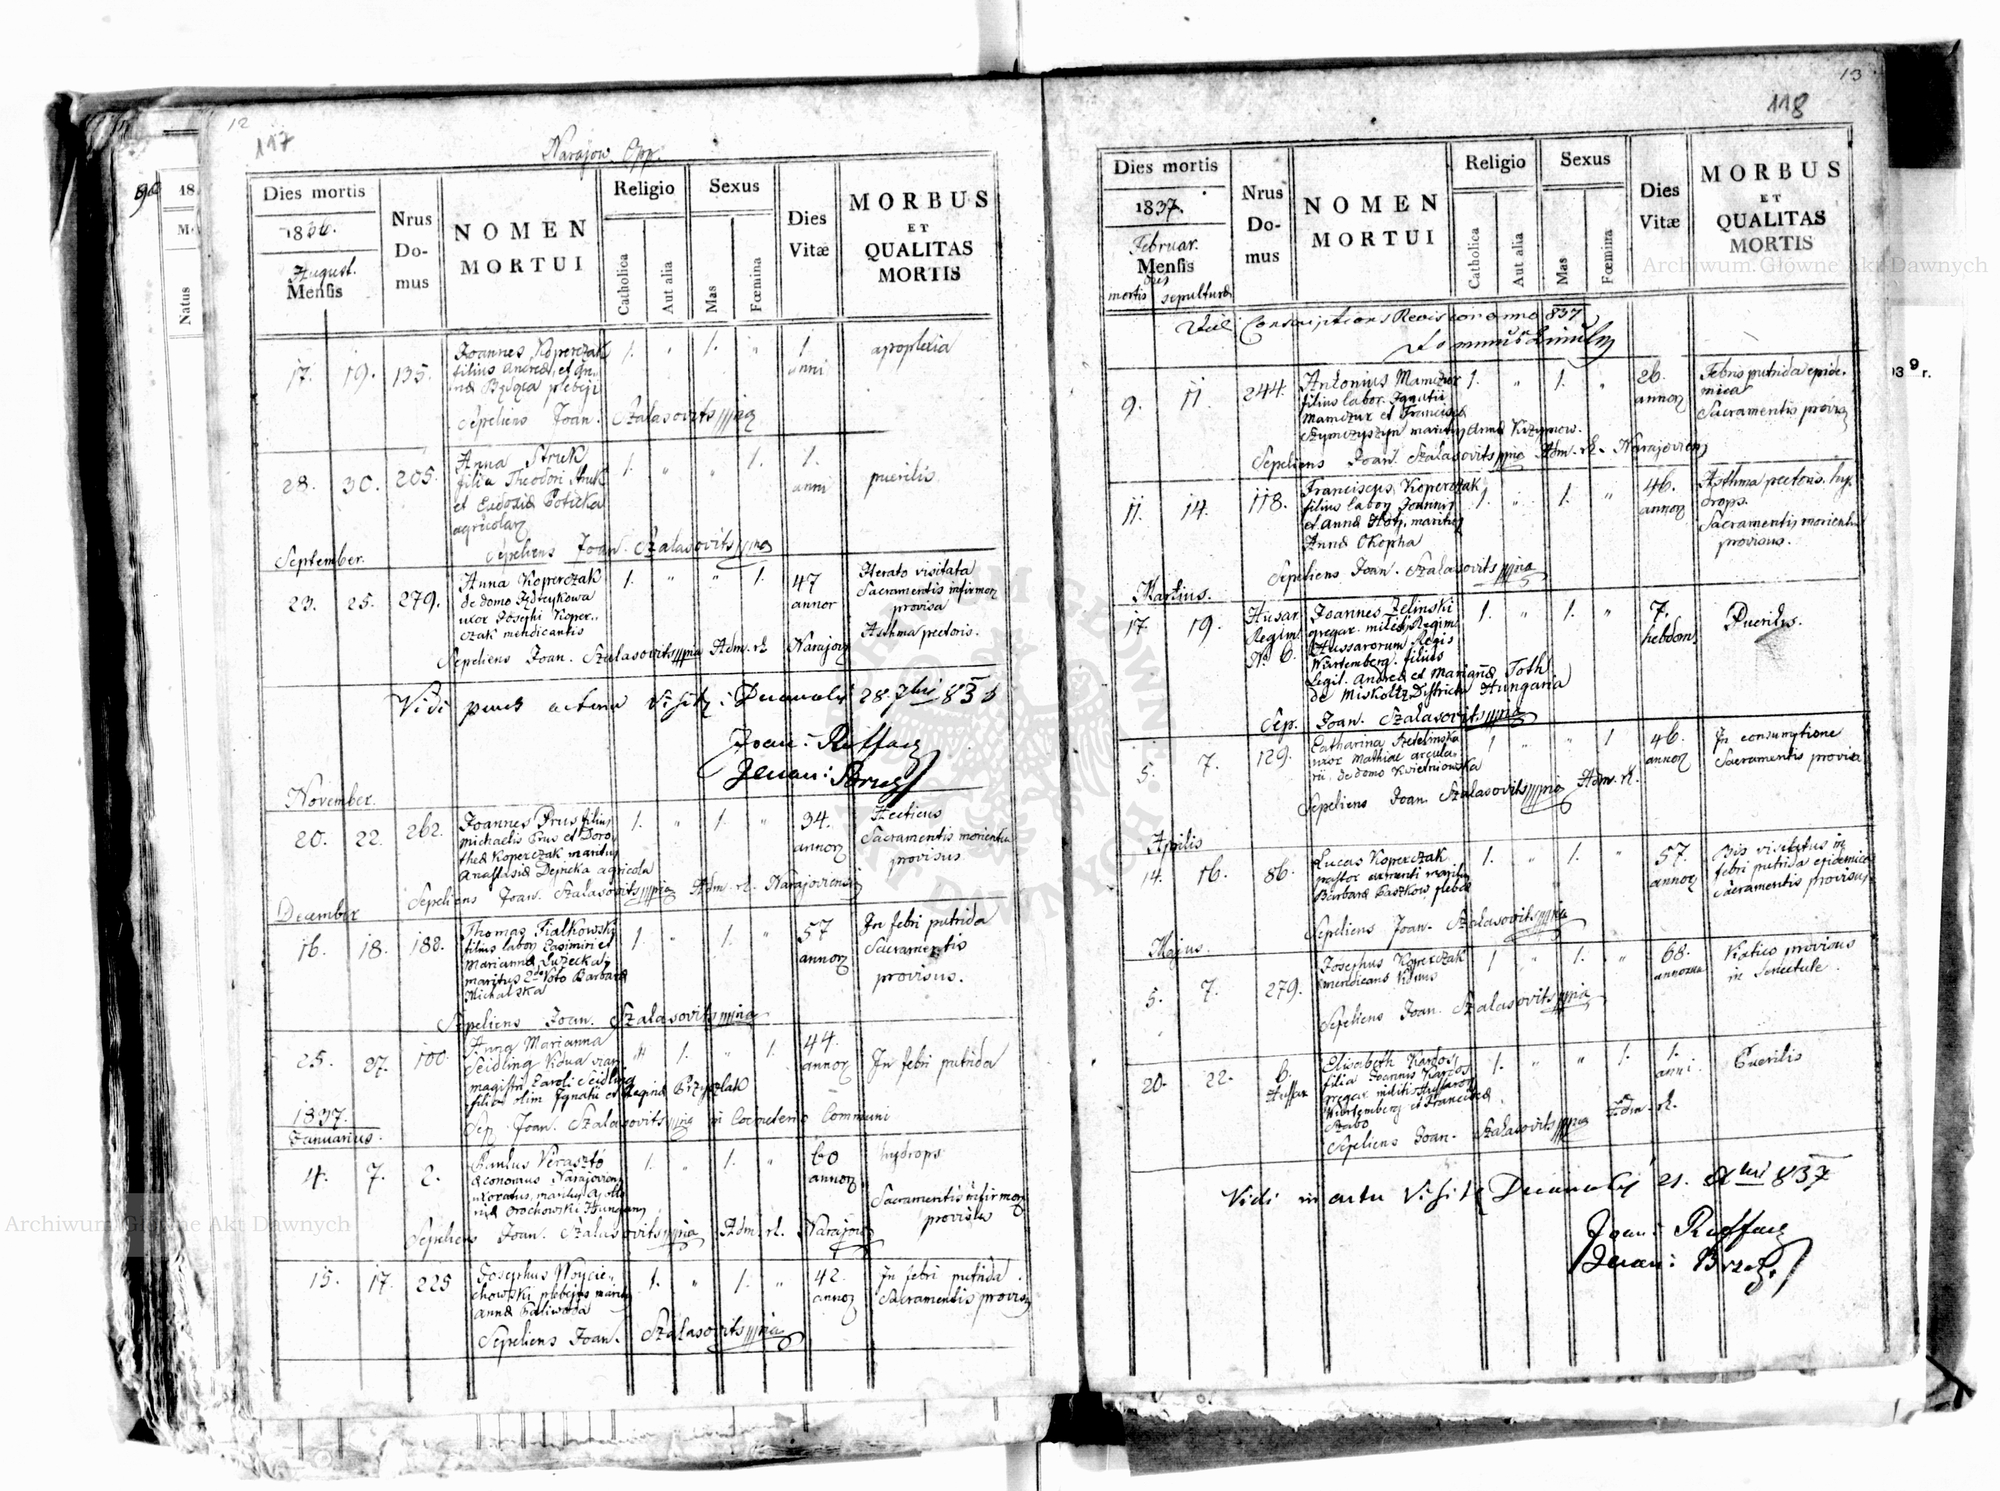 12
117
Narajow Opp.
Dies mortis
1836.
August.
Mensis
Nrus
Do-
mus
NOMEN
MORTUI
Religio
Catholica
Aut alia
Sexus
Mas
Fœmina
Dies
Vitæ
MORBUS
ET
QUALITAS
MORTIS
17. 19. 135.
Joannes Koperczak
filius Andreæ et
plebeji
1. " 1. "
1
anni
apoplexia
Sepeliens Joan. Szalasovits mpria
28. 30. 205.
Anna Struk
filia Theodori Struk
et Eudoxiæ Poticka
agricolar
1. " " 1.
1.
anni
puerilis
Sepeliens Joan. Szalasovits mpria
September.
23. 25. 279.
Anna Koperczak
de domo
uxor Josephi Koper-
czak mendicantis
1. " " 1.
47
annor
Iterato visitata
Sacramentis infirmor
provisa
Asthma pectoris.
Sepeliens Joan. Szalasovits mpria Adm. rl. Narajow
Vidi visit: Decanalis 28. 7bris 836
Joan:
Decan:
November.
20. 22. 262.
Joannes Prus filius
michaelis Prus et Doro
theæ Koperczak maritus
Anastasiæ Dejneka agricola
1. " 1. "
34.
annor
Hecticus
Sacramentis morientium
provisus
Sepeliens Joan. Szalasovits mpria Adm. rl. Narajoviensis
December
16. 18. 188.
Thomas Fialkowski
filius labor Casimiri et
Mariannæ Luzecka
maritus 2do Voto Barbaræ
Michalska
1. " 1. "
57
annor
In febri putrida
Sacramentis
provisus.
Sepeliens Joan. Szalasovits mpria
25. 27. 100
Anna Marianna
Seidling Vidua
magistri Caroli Seidling
filia olim Ignatii et Reginæ Przyczlak
44.
annor
In febri putrida
Sep. Joan. Szalasovits mpria in Coemeterio Communi
1837.
Januarius.
4. 7. 2.
Paulus Veraszto
œconomus Narajovien
uxoratus, maritus Apollo
niæ Orochowski Hungarus
1. " 1. "
60
annor
hydrops
Sacramentis infirmor
provisus
Sepeliens Joan. Szalasovits mpria Adm. rl. Narajow
15. 17. 225
Josephus Woycie-
chowski plebejus marit
Annæ Paliwoda
1. " 1. "
42.
annor
In febri putrida.
Sacramentis provisus
Sepeliens Joan. Szalasovits mpria
13
118
Dies mortis
1837.
Februar.
Mensis
Dies
mortis sepulturæ
Nrus
Do-
mus
NOMEN
MORTUI
Religio
Catholica
Aut alia
Sexus
Mas
Fœmina
Dies
Vitæ
MORBUS
ET
QUALITAS
MORTIS
Conscriptionis Revisor anno 837
9. 11. 244.
Antonius Mamczur
filius labor. Ignatii
Mamczur et Francisca
Szymczyszyn maritus Annæ Krzymow.
1. " 1. "
26.
annor
Febris putrida epide-
mica
Sacramentis provisus
Sepeliens Joan. Szalasovits mpria Adm. rl. Narajovien
11. 14. 118.
Franciscus Koperczak
filius labor Joannis
et Annæ maritus
Annæ Okopha
1. " 1. "
46.
annor
Asthma pectoris. hy-
drops.
Sacramentis morientium
provisus.
Sepeliens Joan. Szalasovits mpria
Martius.
17. 19.
Husar
Regim.
No. 6.
Joannes Zelinski
gregar. militis Regim
Hussarorum Regis
Würtemberg. filius
legit. Andreæ et Mariannæ Toth
de Miskoltz Districtu Hungaria
1. " 1. "
7.
hebdom
Puerilis.
Sep. Joan. Szalasovits mpria
5. 7. 129.
Catharina
uxor Mathiæ arcula-
rii, de domo Kwietniowska
1 " " 1
46.
annor
In consumptione
Sacramentis provisa
Sepeliens Joan. Szalasovits mpria Adm. rl.
Aprilis
14. 16. 86.
Lucas Koperczak
pastor armenti maritus
Barbaræ Paszkow, plebe
1. " 1. "
57.
annor
Bis visitatus in
febri putrida epidemica
Sacramentis provisus
Sepeliens Joan. Szalasovits mpria
Majus.
5. 7. 279.
Josephus Koperczak
mendicans Viduus
1 " 1. "
68.
annorum
Viatico provisus
in Senectute.
Sepeliens Joan. Szalasovits mpria
20. 22. 6.
Hussar
Elisabeth Kardos
filia Joannis Kardos
gregar militis Hussaror
Würtemberg et Francisca
Szabo
1. " " 1.
1.
anni.
Puerilis
Sepeliens Joan. Szalasovits mpria Adm. rl.
Vidi in actu Visitæ Decanalis 21. 837
Joan:
Decan: Brzez.
Archiwum Główne Akt Dawnych
Archiwum Główne Akt Dawnych